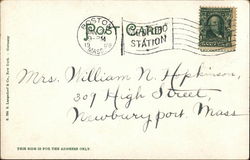 BOSTON
MASS.
POST CARD
STATION
Mrs. William N. Hopkinson,
309 High Street,
Newburyport Mass
THIS SIDE IS FOR THE ADDRESS ONLY.